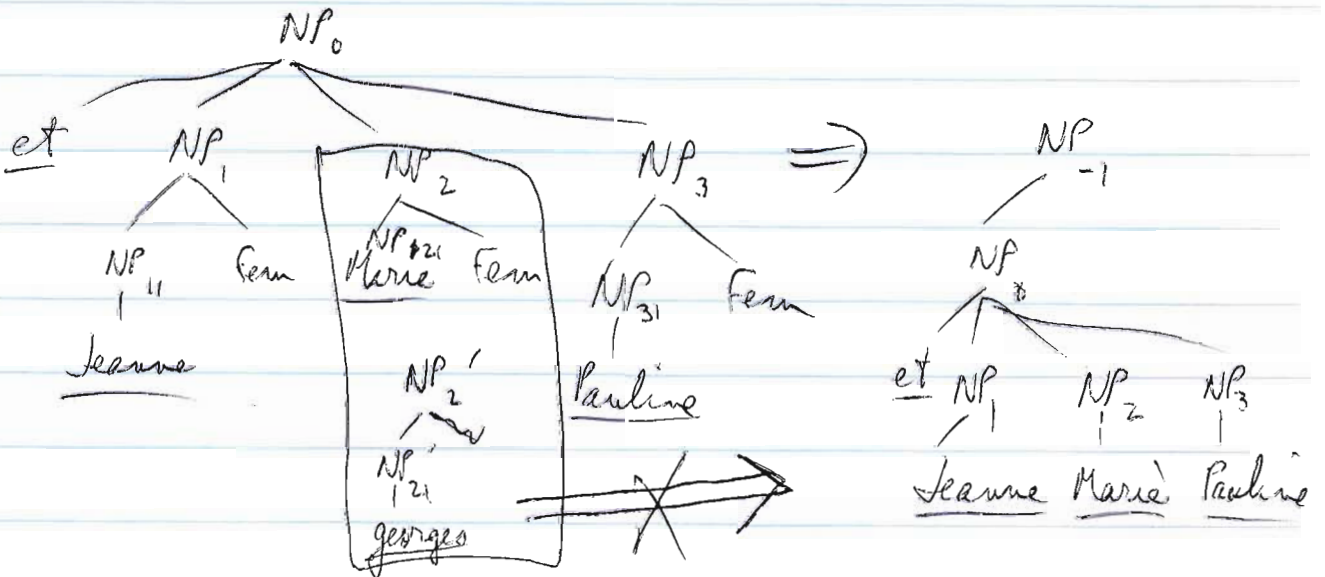 NP₀
et NP₁ NP₂ NP₃ ⇒ NP₋₁
NP₁₁ Fem NP₂₁ Fem NP₃₁ Fem NP
Marie
Jeanne NP₂' Pauline et NP₁ NP₂ NP₃
NP₂₁' Jeanne Marie Pauline
georges